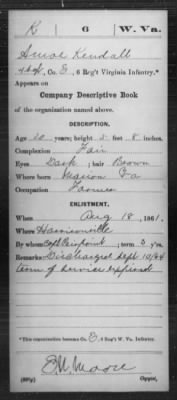 K 6 W. Va.
Kendall
Co. E, 6 Reg't Virginia Infantry.*
Appears on
Company Descriptive Book
of the organization named above.
DESCRIPTION.
Age 20 years; height 5 feet 8 inches.
Complexion Fair
Eyes Dark; hair Brown
Where born Marion Co
Occupation Farmer
ENLISTMENT.
When Aug 18, 1861.
Where
By whom Capt Pierpoint; term 3 y'rs.
Remarks: Discharged Sept 10/64
term of Service expired
*This organization became Co. E, 6 Reg't W. Va. Infantry.
E M Moore
Copyist.